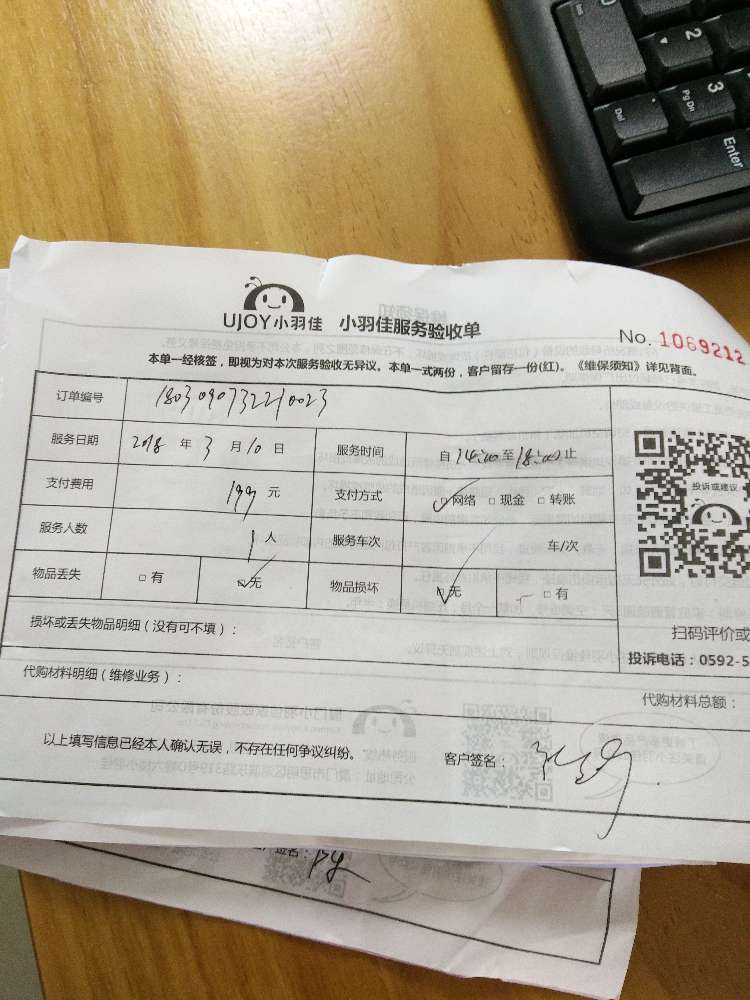 Del
2
3
Pg Dn
Enter
UJOY小羽佳 小羽佳服务验收单
No. 1069212
本单一经核签，即视为对本次服务验收无异议。本单一式两份，客户留存一份(红)。《维保须知》详见背面。
订单编号 1803090732210023
服务日期 2018 年 3 月 10 日 服务时间 自 14:00 至 18:00 止
支付费用 199 元 支付方式 □网络 □现金 □转账
服务人数 1 人 服务车次 车/次
物品丢失 □有 □无 物品损坏 □无 □有
损坏或丢失物品明细（没有可不填）：
投诉或建议
扫码评价或
投诉电话：0592-5
代购材料明细（维修业务）：
代购材料总额：
以上填写信息已经本人确认无误，不存在任何争议纠纷。
客户签名：